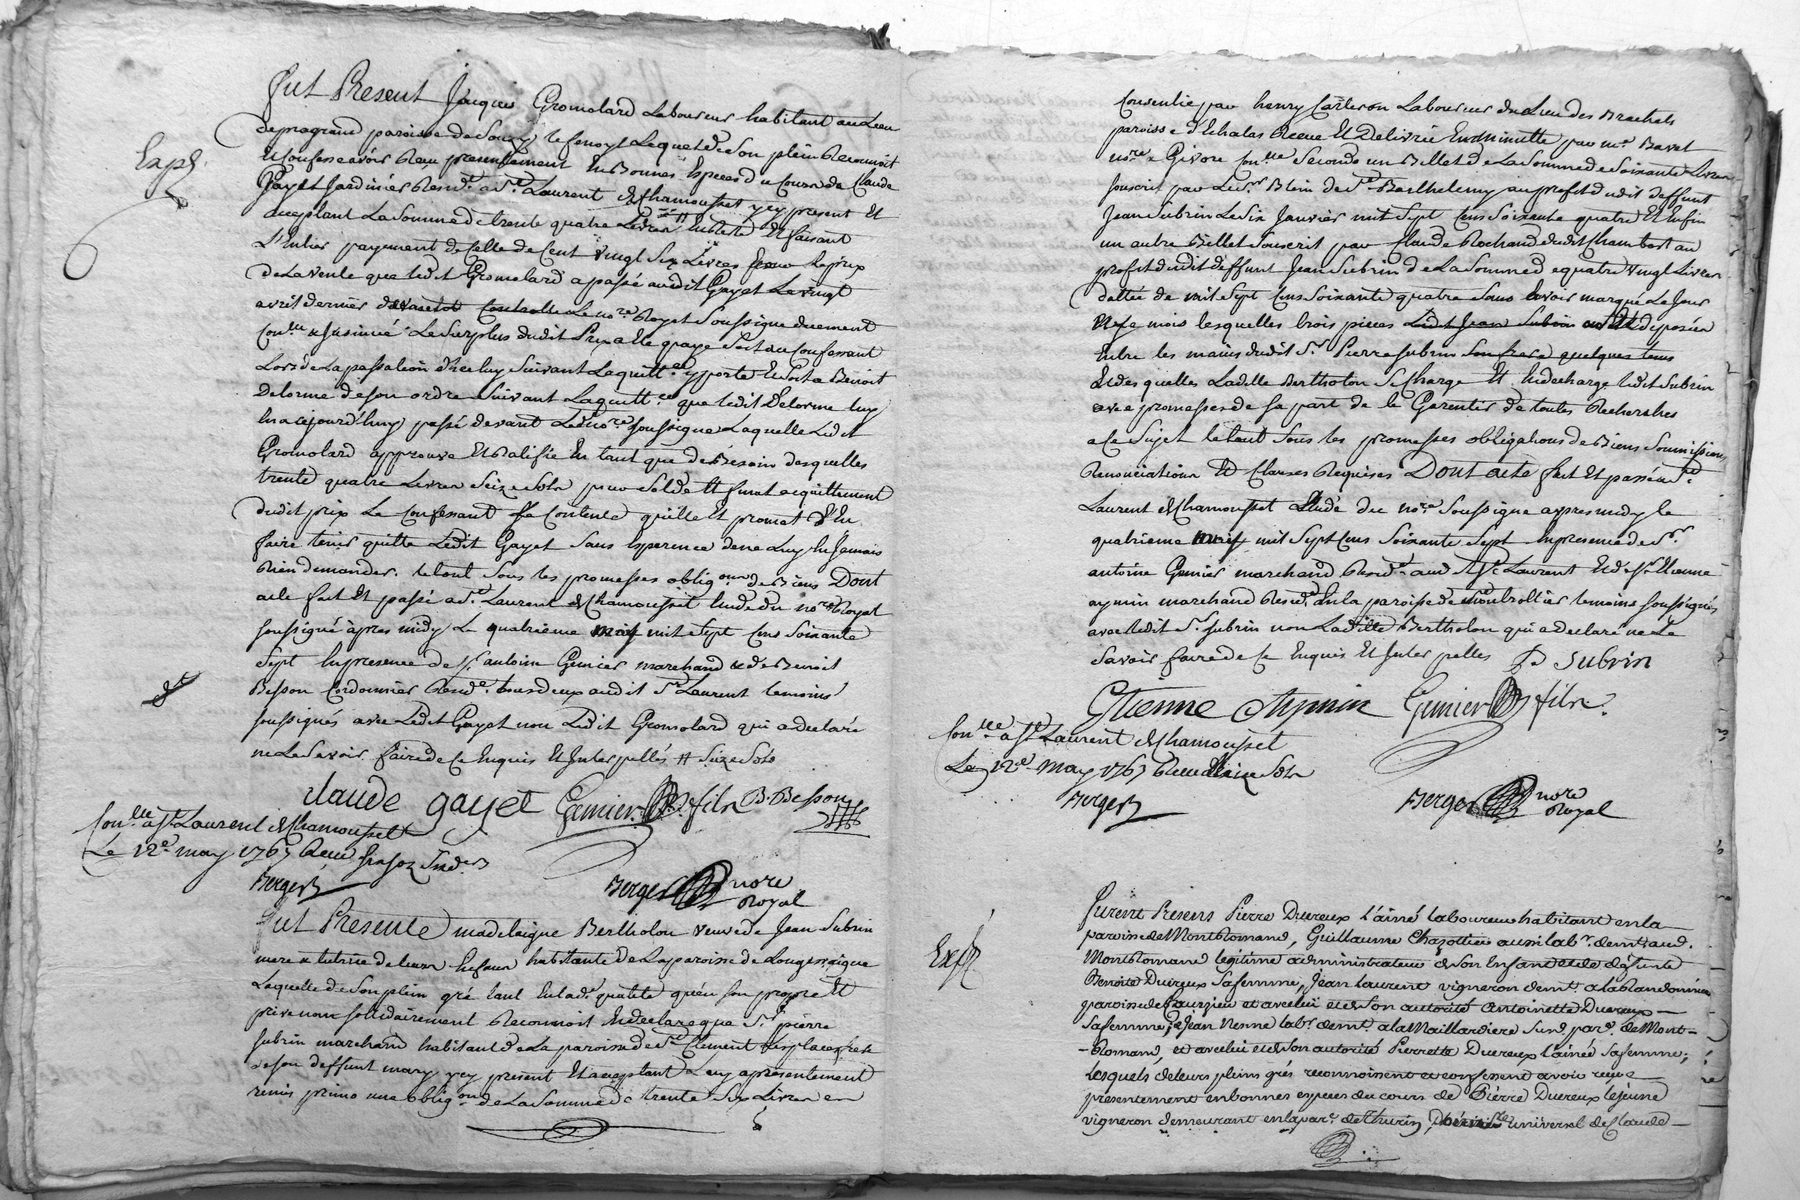 Fut Present Jacques Gromolard Laboureur habitant au Lieu
de paroisse de Souzy Lequel de Son plein Reconnoit
Et Confesse avoir Recu presentement En Bonnes Especes du Cours de Claude
Expé
Gayet Jardinier Resid.t a S.t Laurent de Chamousset y cy present Et
acceptant La Somme de trente quatre Livres # En Reste Et faisant
L'Entier payement de Celle de Cent Vingt Six Livres pour Le prix
de La vente que Ledit Gromolard a passé audit Gayet Le vingt
avril dernier Le no.re Royal Soussigné duement
Con.llé & Insinué Le Surplus dudit Prix a été payé Soit au Confessant
Lors de La passation d'Icelluy Suivant La quitt.ce y portée Et Soit a Benoit
Delorme de Son ordre Suivant La quitt.ce que Ledit Delorme luy
En a cejourd'huy passé devant Ledit no.re Soussigné Laquelle Ledit
Gromolard approuve Et Ratifie En tant que de Besoin desquelles
trente quatre Livres Seize Sols pour Solde Et final acquittement
dudit prix Le Confessant Se Contente quitte Et promet d'En
faire tenir quitte Ledit Gayet Sans Esperence de ne Luy En Jamais
Rien demander. Le tout Sous les promesses oblig.ons de Biens Dont
acte fait Et passé a S.t Laurent de Chamousset Etude du no.re Royal
Soussigné après midy Le quatrieme may mil Sept Cens Soixante
Sept En presence de S.r antoine Grenier marchand & de Benoit
Besson Cordonnier Resid.t tous deux audit S.t Laurent temoins
Soussignés avec Ledit Gayet non Ledit Gromolard qui a declaré
ne Le Savoir faire de Ce Enquis Et Interpellés # Seize Sols
claude gayet Grenier fils B. Besson
Con.llé a S.t Laurent de Chamousset
Le 12.e may 1767 Recu
Berger
Berger nore
Royal
Fut Presente madelaigne Bertholon veuve de Jean Subrin
mere & tutrice de leurs Enfans habitante de La paroisse de Longessaigne
Laquelle de Son plein gré tant En lad.e qualité qu'en Son propre Et
privé nom solidairement Reconnoit Et declare que S.r pierre
Subrin marchand habitant de La paroisse de S.t Clement Les places frere
de Son deffunt mary y cy present Et acceptant a cy apresentement
remis primo une oblig.on de La Somme de trente Six Livres en
Consentie par henry Carteron Laboureur du Lieu des Brachets
paroisse d'Echalas Recue Et Delivrée En minutte par m.e Bavet
no.re a Givors Con.llé Secondo un Billet de La Somme de Soixante Livres
Souscrit par Le S.r Blein de S.t Barthelemy au profit dudit deffunt
Jean Subrin Le Six Janvier mil Sept Cens Soixante quatre Et Enfin
un autre Billet Souscrit par Claude Rochand dudit Chambost au
profit dudit deffunt Jean Subrin de La Somme de quatre vingt Livres
dattée de mil Sept Cens Soixante quatre Sans avoir marqué Le Jour
Et Le mois lesquelles trois pieces Ledit Jean Subrin deposées
Entre les mains dudit S.r Pierre Subrin Son frere quelques tems
Et desquelles Laditte Bertholon Se Charge Et En decharge Ledit Subrin
avec promesses de Sa part de le Garentir de toutes Recherches
a Ce Sujet le tout Sous les promesses obligations de Biens Soumissions
Renonciations Et Clauses Requises Dont acte fait Et passé a S.t
Laurent de Chamousset Etude du no.re Soussigné apres midy le
quatrieme may mil Sept Cens Soixante Sept En presence de S.r
antoine Grenier marchand Resid.t aud. S.t Laurent Et de S.r Etienne
aymin marchand Resid.t En la paroisse de Montrottier temoins Soussignés
avec Ledit S.r Subrin non Laditte Bertholon qui a declaré ne Le
Savoir faire de Ce Enquis Et Interpellés P Subrin
Etienne Aymin Grenier fils
Con.llé a S.t Laurent de Chamousset
Le 12.e may 1767 Recu Seize Sols
Berger
Berger nore
Royal
Furent Presens Pierre Ducreux l'ainé laboureur habitant en la
paroisse de Montromand, Guillaume Chazottier aussi lab.r dem.t aud.
Expé
Montromand legitime administrateur de Son Enfant et de défunte
Benoite Ducreux Sa femme, Jean Laurent vigneron dem.t a la
paroisse de Courzieu et avec lui et de Son autorité Antoinette Ducreux
Sa femme; & Jean Venne lab.r dem.t a la Maillardiere Sus.d par.e de Mont-
-Romand, et avec lui et de Son autorité Pierrette Ducreux l'ainée Sa femme;
lesquels de leurs pleins grés reconnoissent et confessent avoir reçu
présentement en bonnes especes du cours de Pierre Ducreux le jeune
vigneron demeurant en la par.e de Thurin, héritier universel de Claude